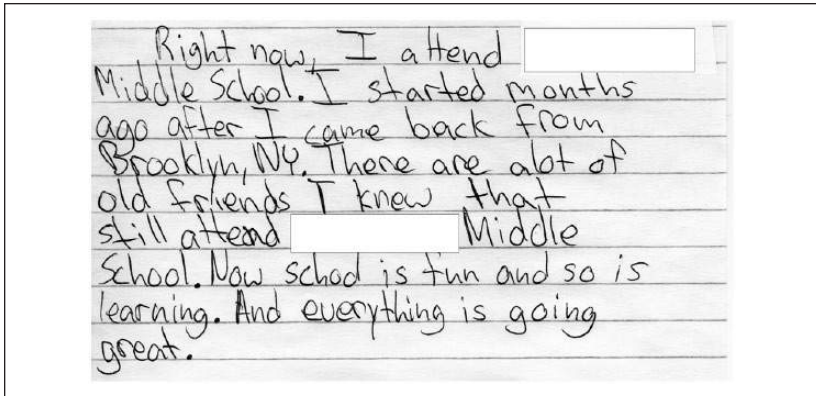 Right now, I attend
Middle School. I started months
ago after I came back from
Brooklyn, NY. There are alot of
old friends I knew that
still attend Middle
School. Now school is fun and so is
learning. And everything is going
great.